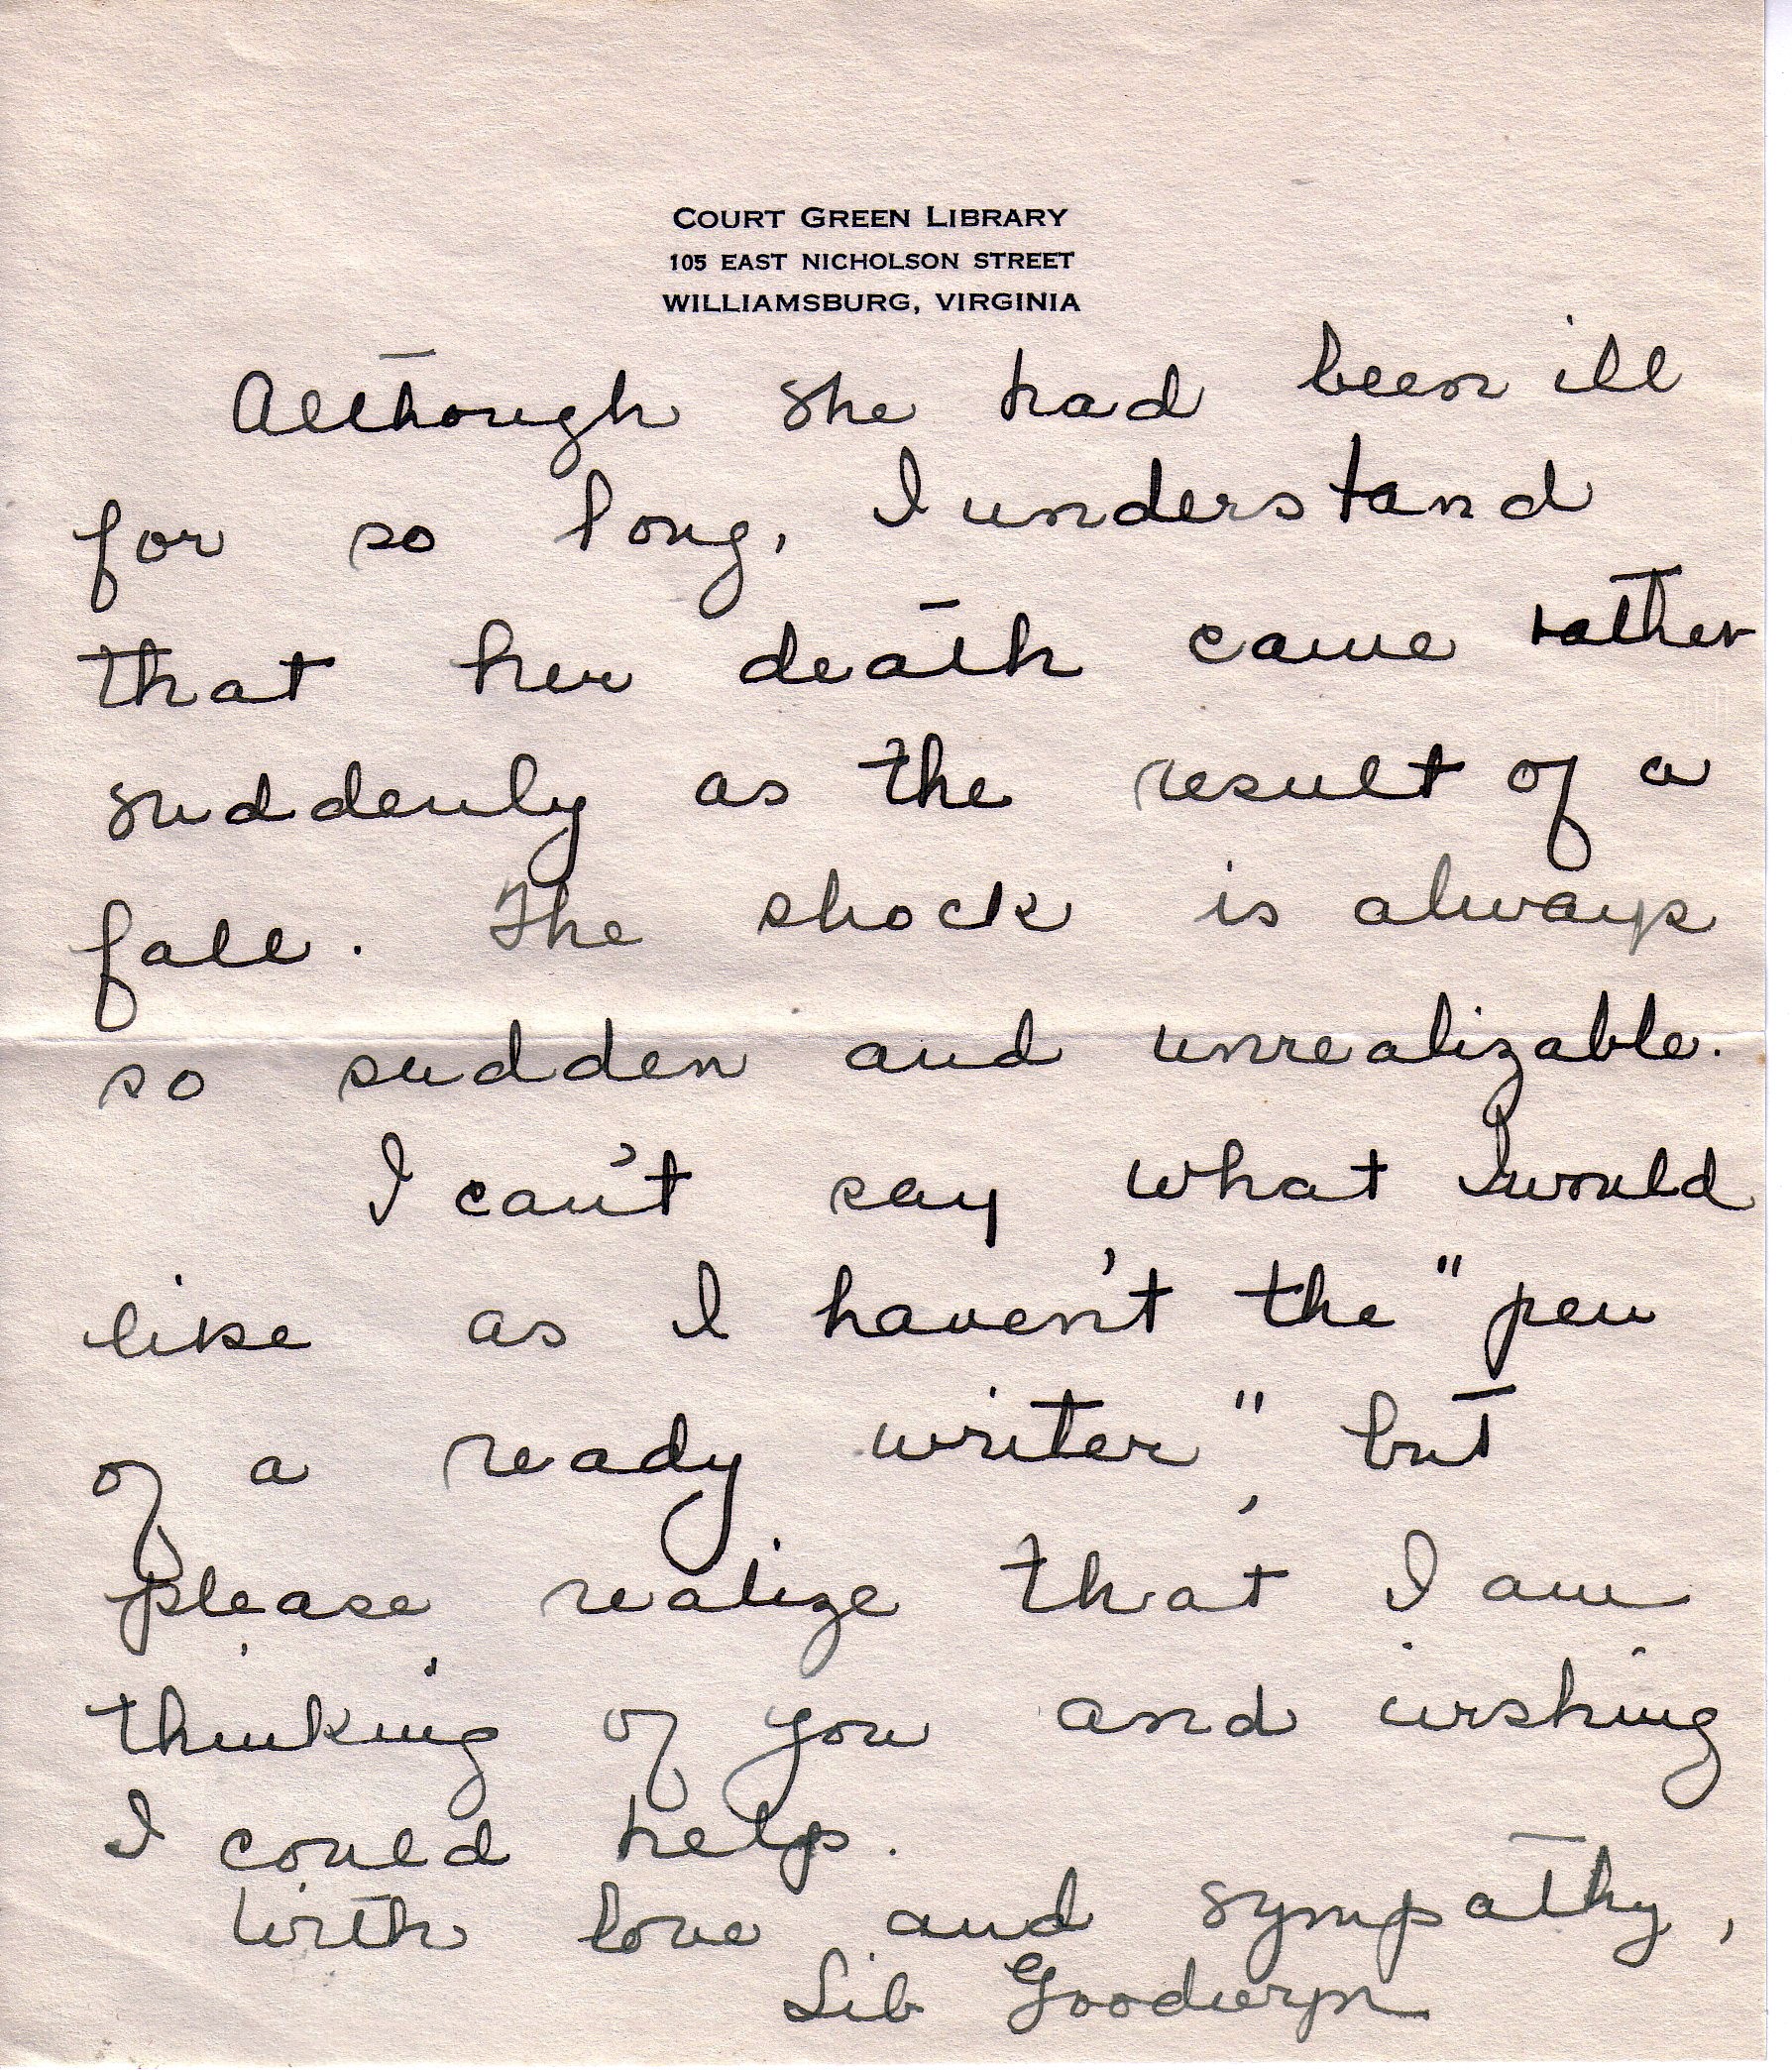 COURT GREEN LIBRARY
105 EAST NICHOLSON STREET
WILLIAMSBURG, VIRGINIA
Although she had been ill
for so long, I understand
that her death came rather
suddenly as the result of a
fall. The shock is always
so sudden and unrealizable.
I can't say what I would
like as I haven't the "pen
of a ready writer" but
please realize that I am
thinking of you and wishing
I could help.
With love and sympathy,
Lib Goodwyn